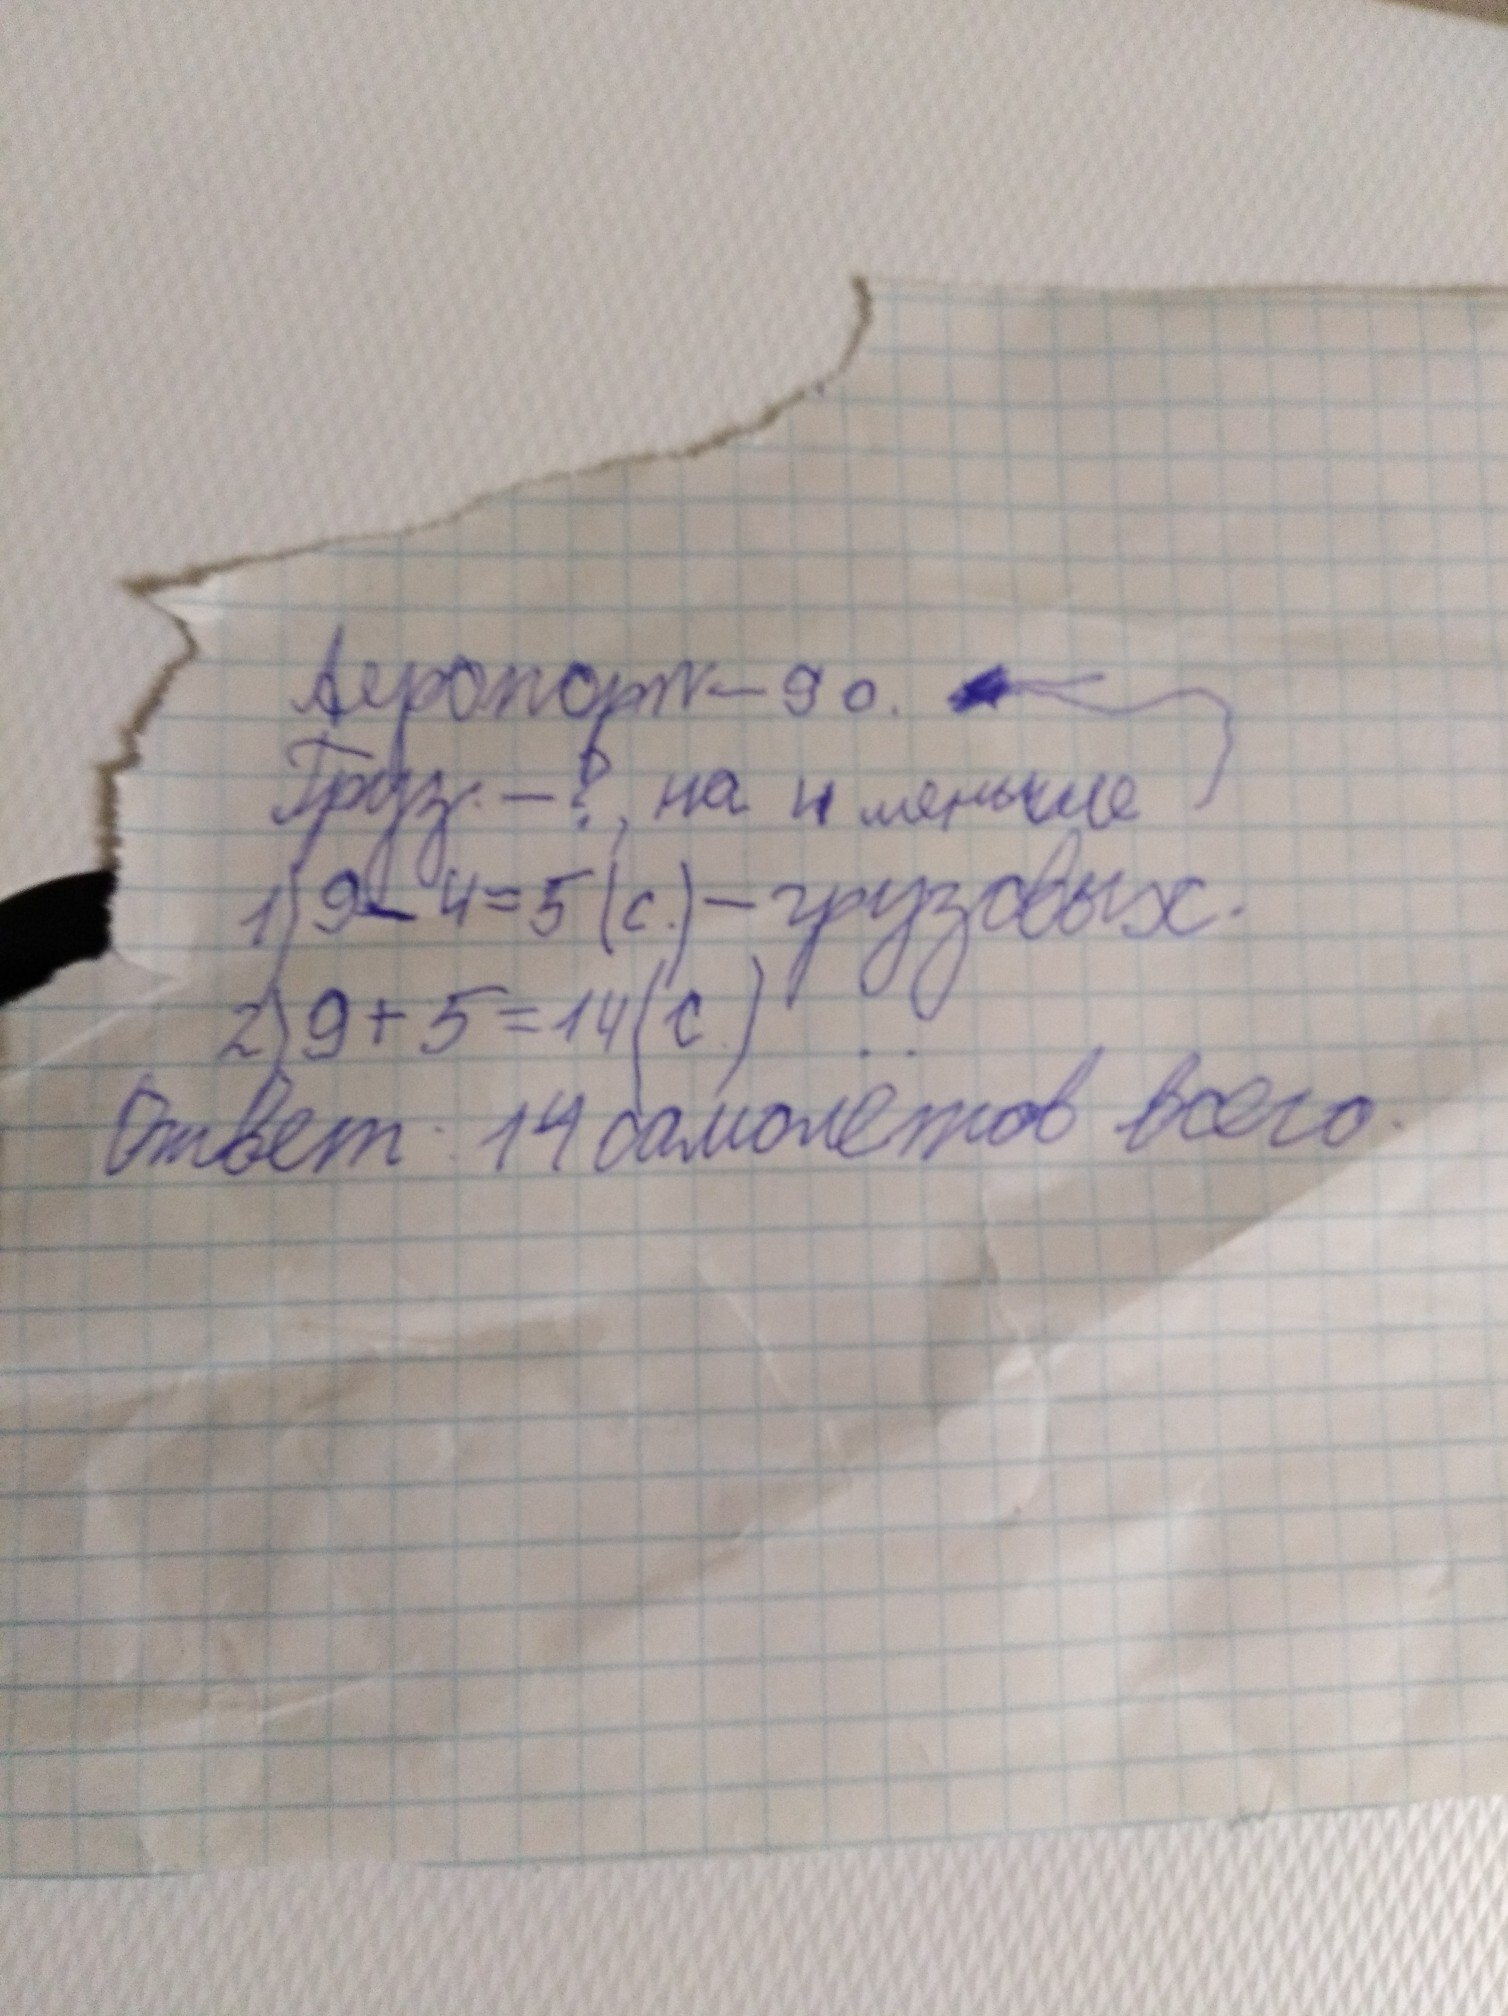 Аеропорт – 9 с.
Груз. – ?, на 4 меньше
1) 9 – 4 = 5 (с.) – грузовых.
2) 9 + 5 = 14 (с.)
Ответ: 14 самолётов всего.